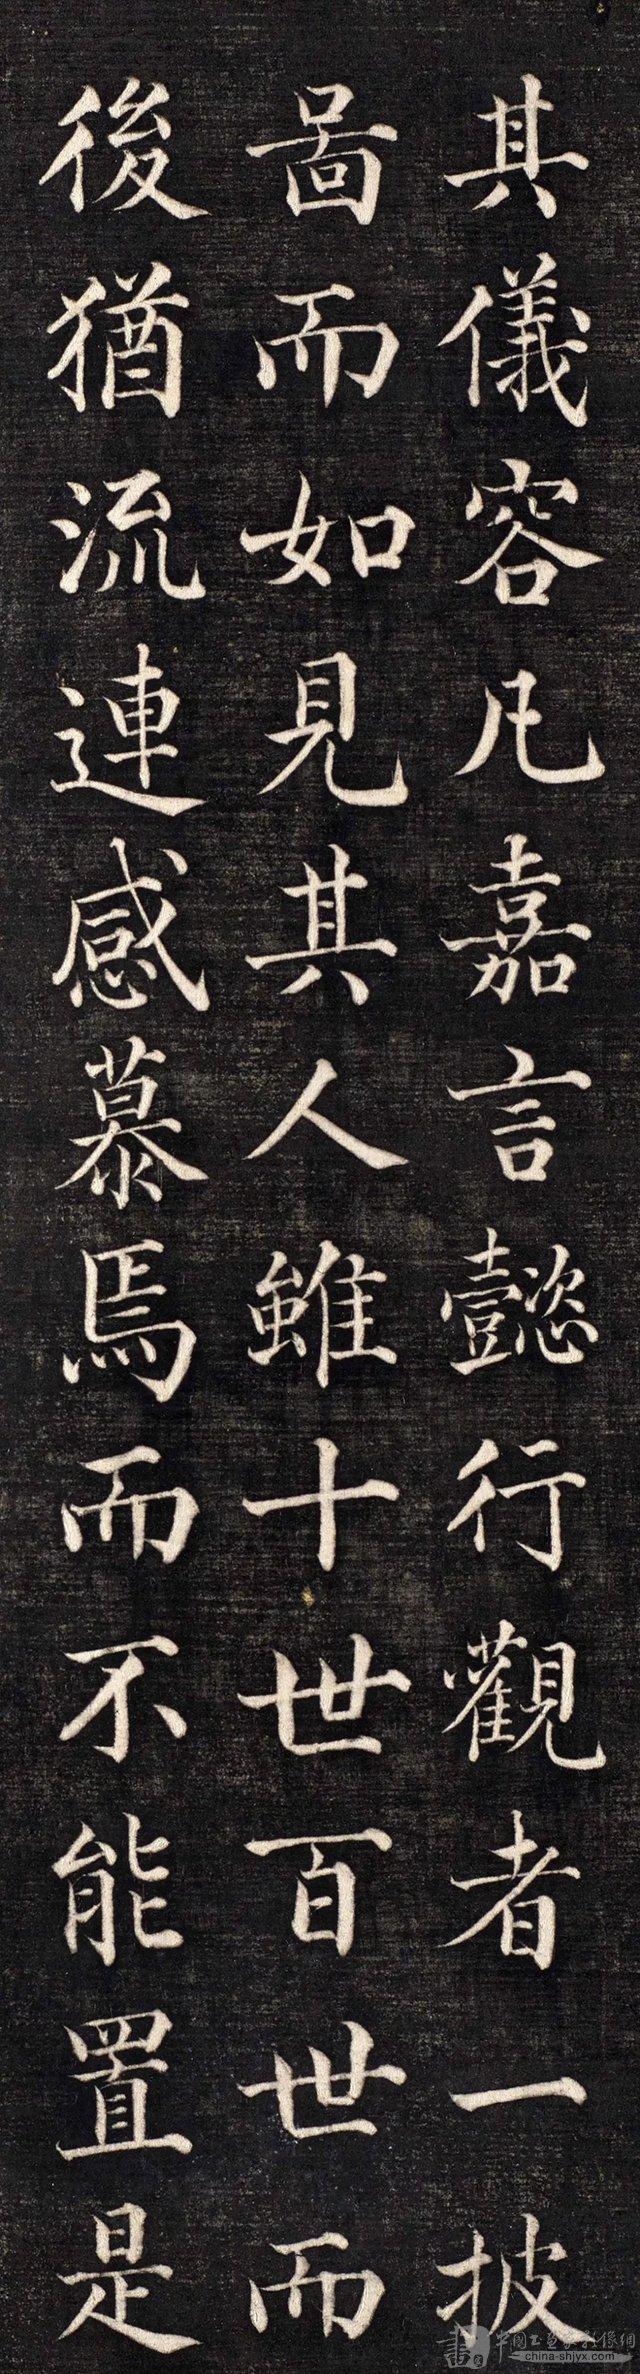 其儀容凡嘉言懿行觀者一披
啚而如見其人雖十世百世而
後猶流連感慕焉而不能置是
書 中國書畫家影像網
china-shjyx.com